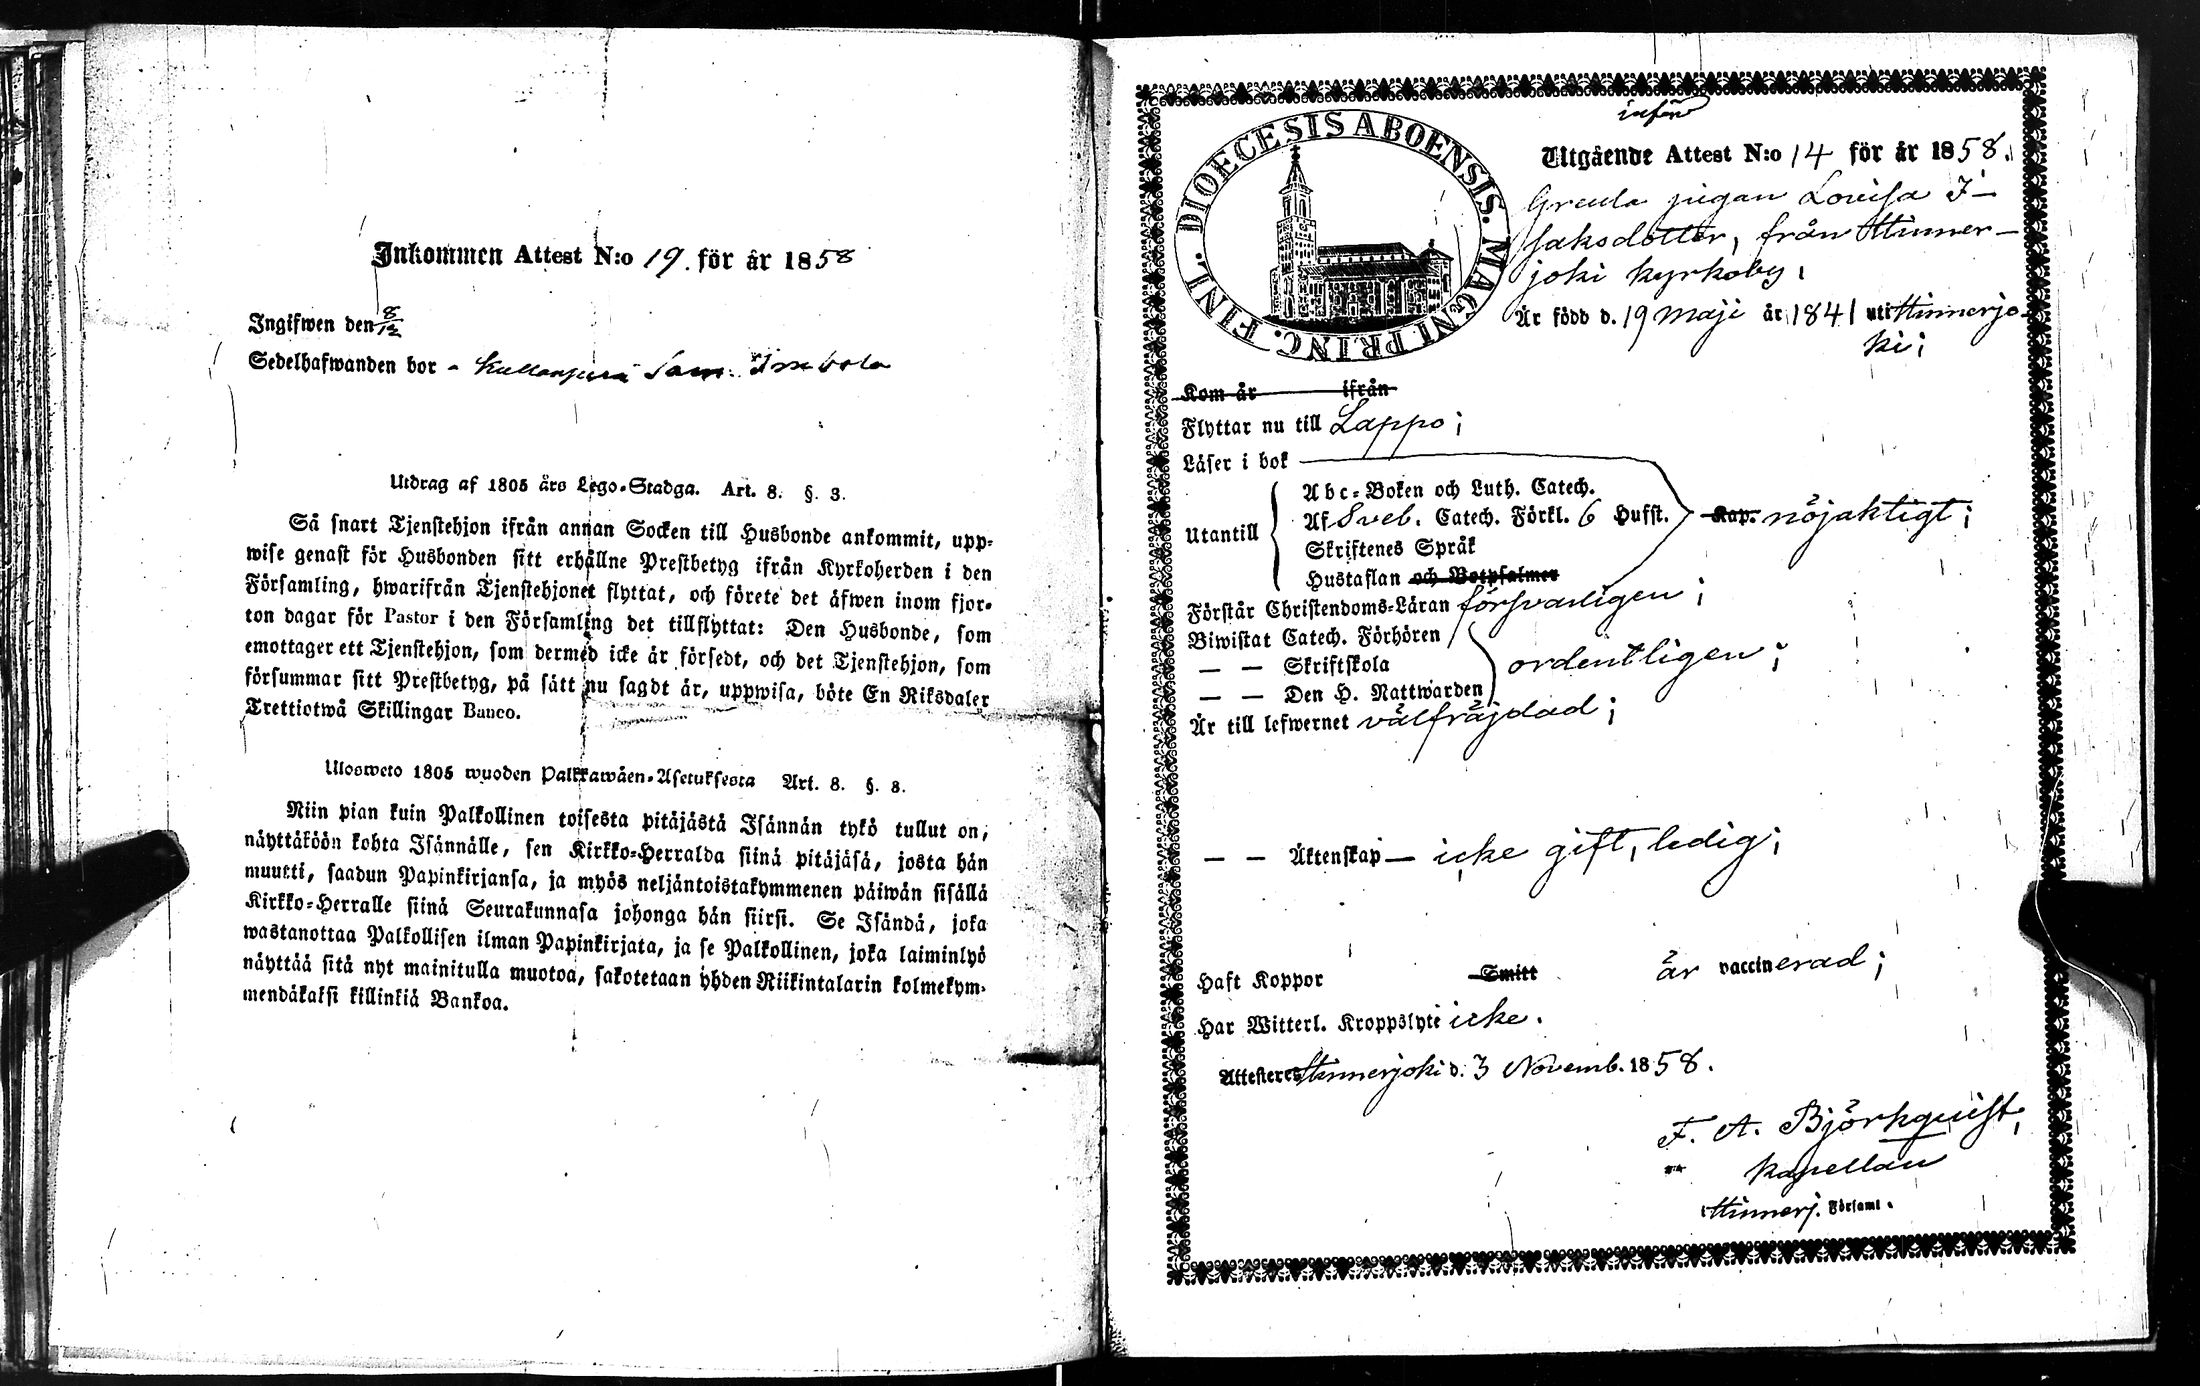 Inkommen Attest N:o 19. för år 1858
Ingifwen den 8/12
Sedelhafwanden bor
Utdrag af 1805 års Lego-Stadga. Art. 8. §. 3.
Så snart Tjenstehjon ifrån annan Socken till Husbonde ankommit, upp-
wise genast för Husbonden sitt erhållne Prestbetyg ifrån Kyrkoherden i den
Församling, hwarifrån Tjenstehjonet flyttat, och förete det äfwen inom fjor-
ton dagar för Pastor i den Församling det tillflyttat: Den Husbonde, som
emottager ett Tjenstehjon, som dermed icke är försedt, och det Tjenstehjon, som
försummar sitt Prestbetyg, på sätt nu sagdt är, uppwisa, böte En Riksdaler
Trettiotwå Skillingar Banco.
Ulosweto 1805 wuoden Palkkawäen-Asetuksesta Art. 8. §. 3.
Niin pian kuin Palkollinen toisesta pitäjästä Isännän tykö tullut on,
näyttäköön kohta Isännälle, sen Kirkko-Herralda siinä pitäjäsä, josta hän
muutti, saadun Papinkirjansa, ja myös neljäntoistakymmenen päiwän sisällä
Kirkko-Herralle siinä Seurakunnasa johonga hän siirsi. Se Isändä, joka
wastanottaa Palkollisen ilman Papinkirjata, ja se Palkollinen, joka laiminlyö
näyttää sitä nyt mainitulla muotoa, sakotetaan yhden Riikintalarin kolmekym-
mendäkaksi killinkiä Bankoa.
DIOECESIS ABOENSIS. MAGNI PRINC. FINL.
Utgående Attest N:o 14 för år 1858.
pigan Lovisa I-
saksdotter, från Hinner-
joki kyrkoby;
Är född d. 19 maji år 1841 uti Hinnerjo-
ki;
Kom år ifrån
Flyttar nu till Lappo;
Läser i bok
Abc-Boken och Luth. Catech.
Utantill Af Sveb. Catech. Förkl. 6 Hufst. Kap. nöjaktigt;
Skriftenes Språk
Hustaflan och Botpsalmer
Förstår Christendoms-Läran försvarligen;
Biwistat Catech. Förhören
— — Skriftskola ordentligen;
— — Den H. Nattwarden
Är till lefwernet välfräjdad;
— — Äktenskap — icke gift, ledig;
Haft Koppor Smitt är vaccinerad;
Har Witterl. Kroppslyte icke.
Attesteres Hinnerjoki d. 3 Novemb. 1858.
F. A. Björkquist,
kapellan
Hinnerj. Församl.